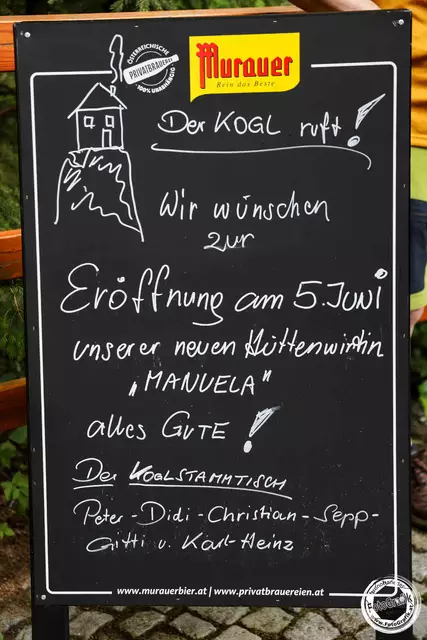 ÖSTERREICHISCHE
PRIVATBRAUEREI
100% UNABHÄNGIG
Murauer
Rein das Beste
Der KOGL ruft!
Wir wünschen
zur
Eröffnung am 5. JUNI
unserer neuen Hüttenwirtin
„MANUELA"
alles GUTE!
Der KOGLSTAMMTISCH
Peter - Didi - Christian - Sepp -
Gitti u. Karl-Heinz
www.murauerbier.at | www.privatbrauereien.at